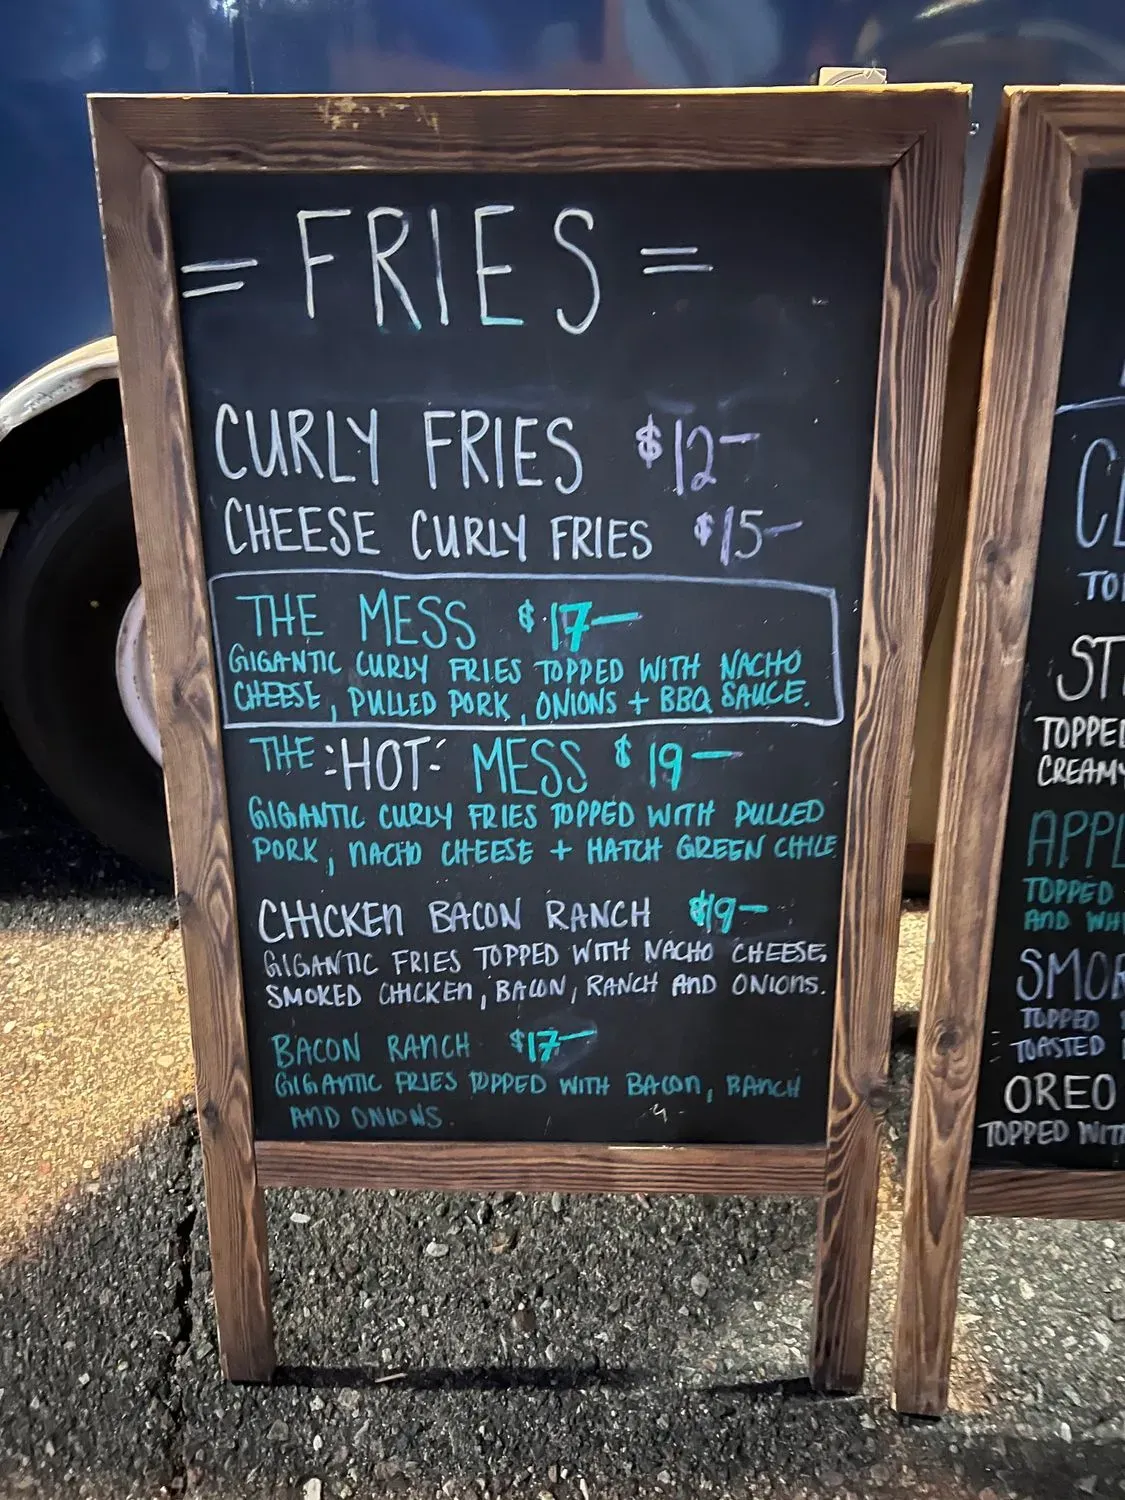 = FRIES =
CURLY FRIES $12-
CHEESE CURLY FRIES $15-
THE MESS $17-
GIGANTIC CURLY FRIES TOPPED WITH NACHO
CHEESE, PULLED PORK, ONIONS + BBQ SAUCE.
THE HOT MESS $19-
GIGANTIC CURLY FRIES TOPPED WITH PULLED
PORK, NACHO CHEESE + HATCH GREEN CHILE
CHICKEN BACON RANCH $19-
GIGANTIC FRIES TOPPED WITH NACHO CHEESE,
SMOKED CHICKEN, BACON, RANCH AND ONIONS.
BACON RANCH $17-
GIGANTIC FRIES TOPPED WITH BACON, RANCH
AND ONIONS.
TOPPED
CREAMY
TOPPED
AND
TOPPED
TOASTED
OREO
TOPPED WITH